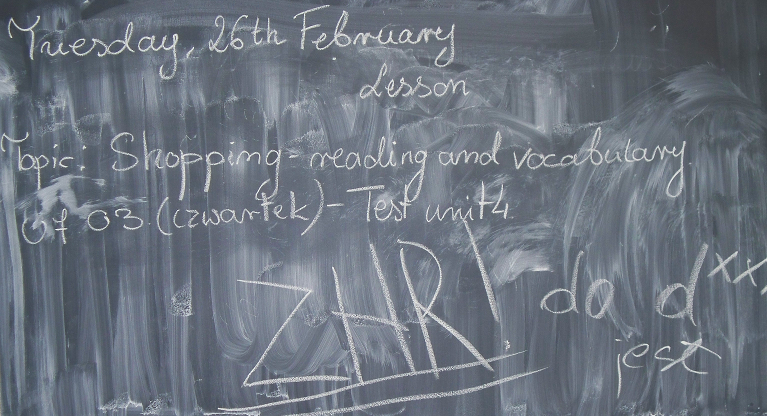 Tuesday, 26th February
Lesson
Topic: Shopping - reading and vocabulary.
07 03 (czwartek) - Test unit 4.
ZHR do dxxx
jest